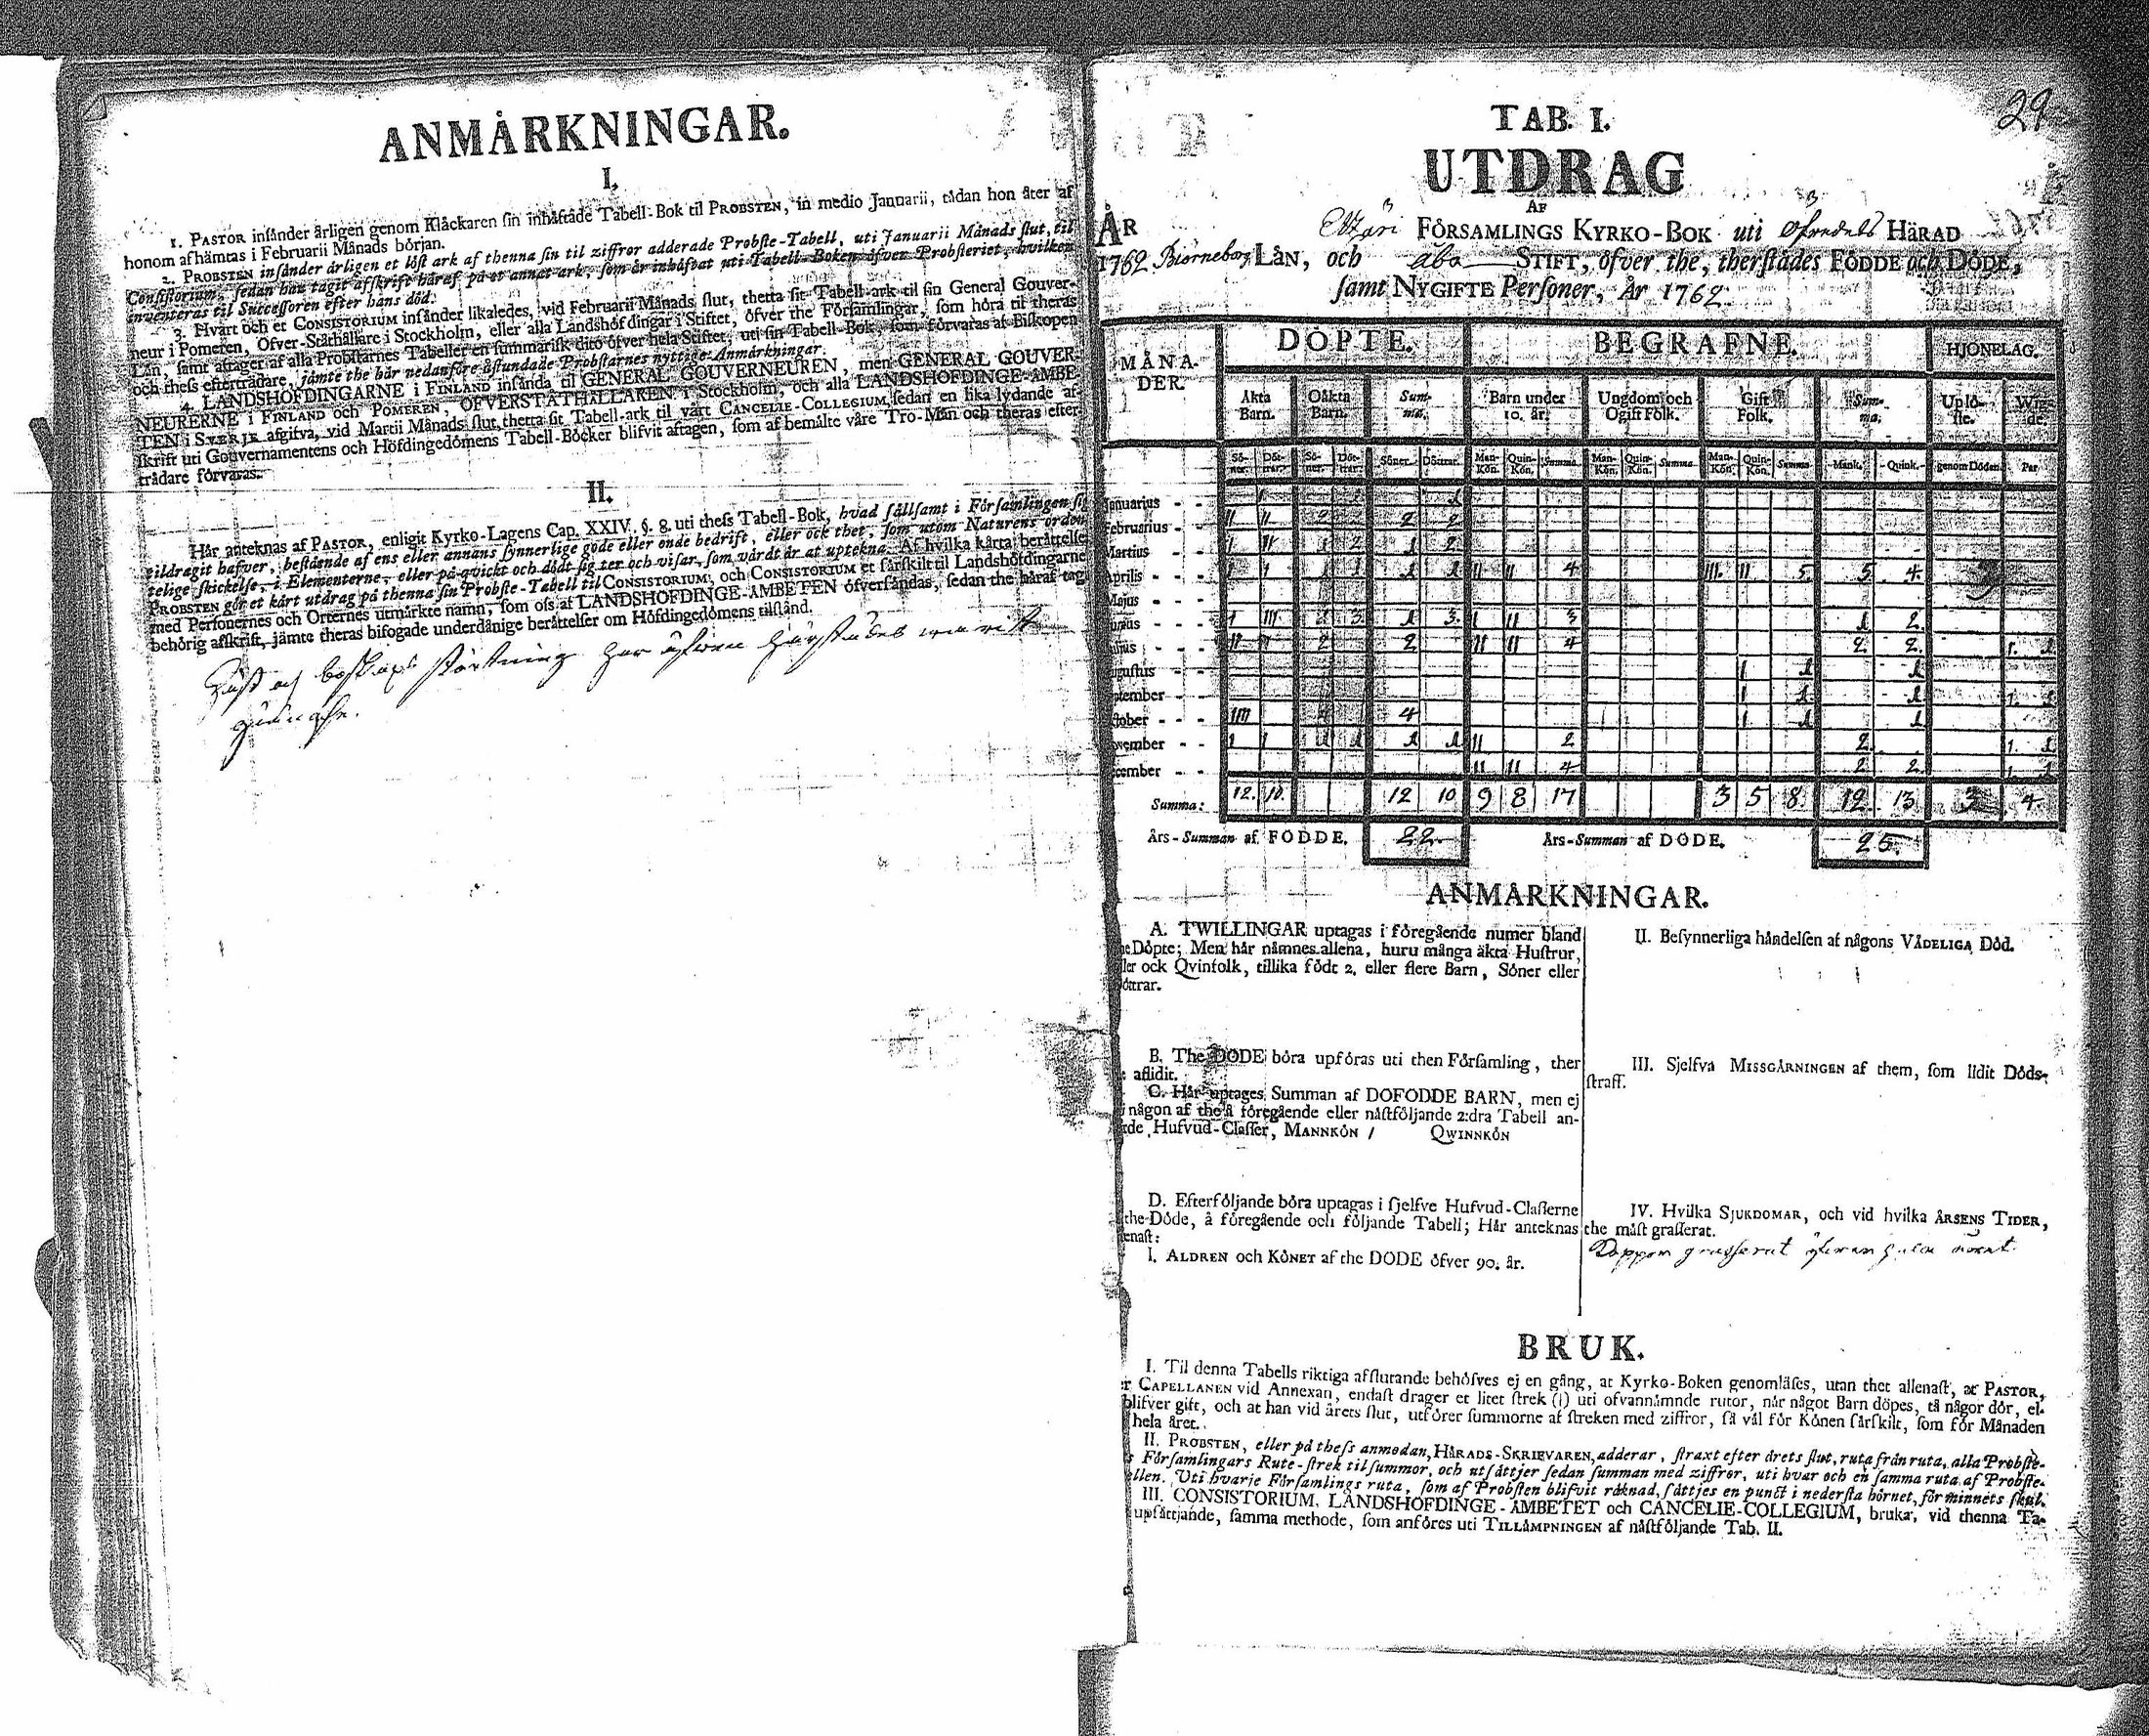 ANMÅRKNINGAR.
I.
1. PASTOR inſånder årligen genom Klåckaren ſin inhåftade Tabell-Bok til PROBSTEN, in medio Januarii, tådan hon åter af
honom afhåmtas i Februarii Månads början.
2. PROBSTEN inſånder årligen et löſt ark af thenna ſin til ziffror adderade Probſte-Tabell, uti Januarii Månads ſlut, til
Conſiſtorium, ſedan han tagit afſkrift håraf på et annat ark, ſom år inhåftat uti Tabell-Boken öfver Probſteriet, hvilken
inventeras til Succeſſoren efter hans död.
3. Hvart och et CONSISTORIUM inſånder likaledes, vid Februarii Månads ſlut, thetta ſit Tabell-ark til ſin General Gouver-
neur i Pomeren, Öfver-Ståthållare i Stockholm, eller alla Landshöfdingar i Stiftet, öfver the Förſamlingar, ſom höra til theras
Lån, ſamt aftager af alla Probſtarnes Tabeller en ſummariſk dito öfver hela Stiftet, uti ſin Tabell-Bok, ſom förvaras af Biſkopen
och theſs eftertrådare, jåmte the hår nedanföre åſtundade Probſtarnes nyttige Anmårkningar.
4. LANDSHÖFDINGARNE i FINLAND inſånda til GENERAL GOUVERNEUREN, men GENERAL GOUVER-
NEURERNE i FINLAND och POMEREN, ÖFVERSTÅTHÅLLAREN i Stockholm, och alla LANDSHÖFDINGE-ÅMBE-
TEN i SVERJE afgifva, vid Martii Månads ſlut, thetta ſit Tabell-ark til vårt CANCELIE-COLLEGIUM, ſedan en lika lydande af-
ſkrift uti Gouvernamentens och Höfdingedömens Tabell-Böcker blifvit aftagen, ſom af bemålte våre Tro-Mån och theras efter-
trådare förvaras.
II.
Hår anteknas af PASTOR, enligit Kyrko-Lagens Cap. XXIV. §. 8. uti theſs Tabell-Bok, hvad ſållſamt i Förſamlingen ſig
tildragit hafver, beſtående af ens eller annans ſynnerlige gode eller onde bedrift, eller ock thet, ſom utom Naturens orden-
telige ſkickelſe, i Elementerne, eller på qvickt och dödt ſig ter och viſar, ſom vårdt år at uptekna. Af hvilka kårta beråttelſer
PROBSTEN gör et kårt utdrag på thenna ſin Probſte-Tabell til CONSISTORIUM, och CONSISTORIUM et ſårſkilt til Landshöfdingarne
med Perſonernes och Orternes utmårkte namn, ſom oſs af LANDSHÖFDINGE-ÅMBETEN öfverſåndas, ſedan the håraf tagit
behörig afſkrift, jåmte theras bifogade underdånige beråttelſer om Höfdingedömens tilſtånd.
och boſkaps ſtörtning har
29
TAB. I.
UTDRAG
AF
ÅR Etzäri FÖRSAMLINGS KYRKO-BOK uti Öfredels HÄRAD
1762 Biörneborg LÄN, och Åbo STIFT, öfver the, therſtådes FÖDDE och DÖDE,
ſamt NYGIFTE Perſoner, År 1762.
MÅNA-DER. DÖPTE. BEGRAFNE. HJONELAG.
Åkta Barn. Oåkta Barn. Sum-ma. Barn under 10. år. Ungdom och Ogift Folk. Gift Folk. Sum-ma. Uplö-ſte. Wig-de.
Sö-ner. Döt-trar. Sö-ner. Döt-trar. Söner. Döttrar. Man-Kön. Quin-Kön. Summa Man-Kön. Quin-Kön. Summa Man-Kön. Quin-Kön. Summa Mank. Quink. genom Döden Par
Januarius - - 1 1 1
Februarius - - II II 2 2 2 2
Martius - - I II 1 2 1 2
Aprilis - - I I 1 1 1 1 II II 4 III. II 5. 5 4. 3
Majus - -
Junius - - I III 1 3. 1 3. I II 3 1 2.
Julius - - II 2 2 II II 4 2 2. 1. 1
Auguſtus - - I 1 1
September - - I 1 1 1. 1
October - - IIII 4 4 I 1 1
November - - I I 1 1 1 1 II 2 2. 1. 1
December - - II II 4 2 2 1. 1
Summa: 12. 10. 12 10 9 8 17 3 5 8 12 13 3 4.
Års-Summan af FÖDDE. 22. Års-Summan af DÖDE. 25.
ANMÅRKNINGAR.
A. TWILLINGAR uptagas i föregående numer bland
the Döpte; Men hår nåmnes allena, huru många äkta Huſtrur,
eller ock Qvinfolk, tillika födt 2. eller flere Barn, Söner eller
Döttrar.
B. The DÖDE böra upföras uti then Förſamling, ther
the aflidit.
C. Hår uptages Summan af DÖFÖDDE BARN, men ej
i någon af theſſa föregående eller nåſtföljande 2:dra Tabell an-
förde Hufvud-Claſſer, MANNKÖN / QWINNKÖN
D. Efterföljande böra uptagas i ſjelfve Hufvud-Claſſerne
af the Döde, å föregående och följande Tabell; Hår anteknas
allenaſt:
I. ÅLDREN och KÖNET af the DÖDE öfver 90. år.
II. Beſynnerliga håndelſen af någons VÅDELIGA Död.
III. Sjelfva MISSGÅRNINGEN af them, ſom lidit Döds-
ſtraff.
IV. Hvilka SJUKDOMAR, och vid hvilka ÅRSENS TIDER,
the måſt graſſerat.
Koppor graſſerat
BRUK.
I. Til denna Tabells riktiga afſlutande behöfves ej en gång, at Kyrko-Boken genomlåſes, utan thet allenaſt, at PASTOR,
eller CAPELLANEN vid Annexan, endaſt drager et litet ſtrek (I) uti ofvannåmnde rutor, når något Barn döpes, tå någor dör, el-
blifver gift, och at han vid årets ſlut, utförer ſummorne af ſtreken med ziffror, ſå vål för Könen ſårſkilt, ſom för Månaden
hela året.
II. PROBSTEN, eller på theſs anmodan, HÅRADS-SKRIFVAREN, adderar, ſtraxt efter årets ſlut, ruta från ruta, alla Probſte-
Förſamlingars Rute-ſtrek til ſummor, och utſåttjer ſedan ſumman med ziffror, uti hvar och en ſamma ruta af Probſte-
Tabellen. Uti hvarje Förſamlings ruta, ſom af Probſten blifvit råknad, ſåttjes en punct i nederſta hörnet, för minnets ſkul.
III. CONSISTORIUM, LANDSHÖFDINGE-ÅMBETET och CANCELIE-COLLEGIUM, bruka, vid thenna Ta-
upſåttjande, ſamma methode, ſom anföres uti TILLÅMPNINGEN af nåſtföljande Tab. II.